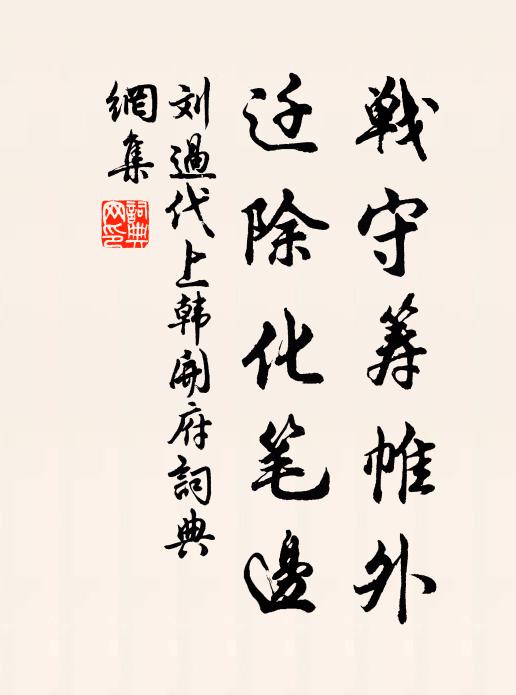 戰守筹帷外
迁除化笔邊
刘過代上韩開府詞典
網集
詞典
网印